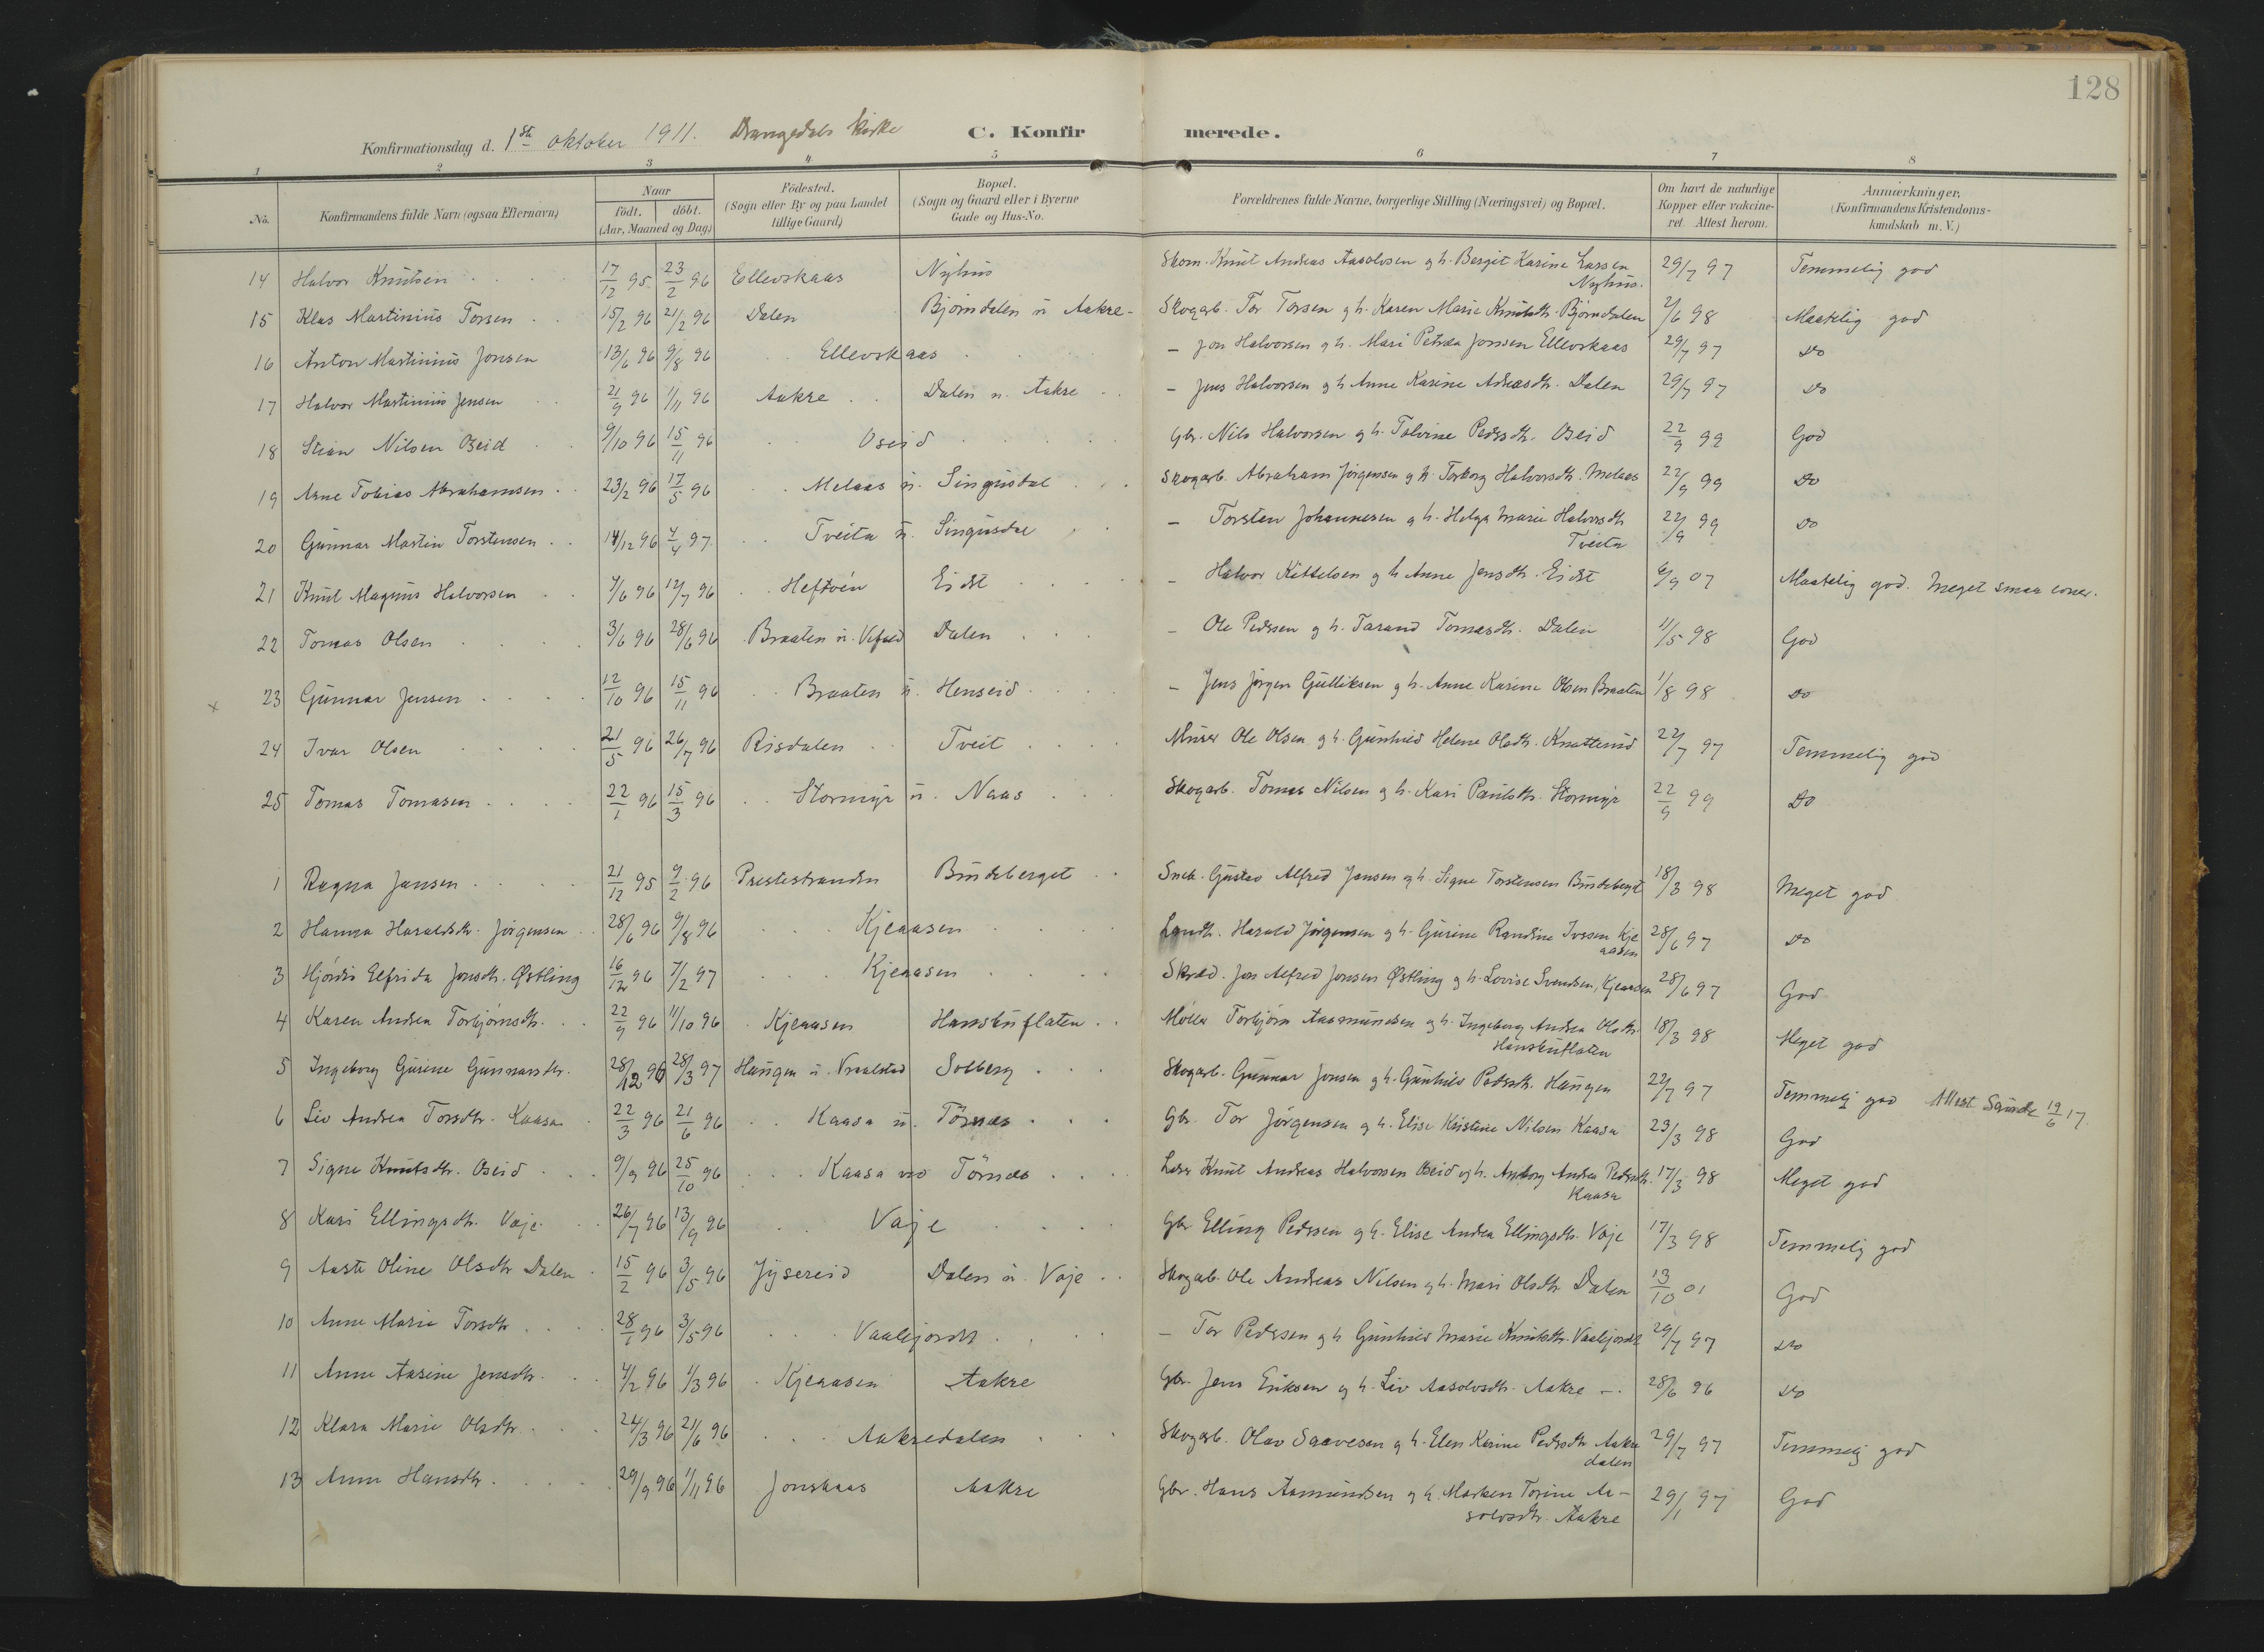 128
Konfirmationsdag d. 1ste oktober 1911. Drangedals kirke C. Konfirmerede.
1 2 3 4 5 6 7 8
No. Konfirmandens fulde Navn (ogsaa Efternavn) Naar födt. döbt. (Aar, Maaned og Dag) Födested. (Sogn eller By og paa Landet tillige Gaard) Bopæl. (Sogn og Gaard eller i Byerne Gade og Hus-No. Forældrenes fulde Navne, borgerlige Stilling (Næringsvei) og Bopæl. Om havt de naturlige Kopper eller vakcineret. Attest herom. Anmærkninger. (Konfirmandens Kristendomskundskab m. V.)
14 Halvor Knutsen 17/12 95 23/2 96 Ellevskaas Nyhus Skom. Knut Andreas Aasolvsen og h. Bergit Karine Larsen Nyhus. 29/7 97 Temmelig god
15 Klas Martinius Torsen 15/2 96 21/2 96 Dalen Bjørndalen u. Aakre Skogarb. Tor Torsen og h. Karen Marie Knutsdtr. Bjørndalen 2/6 98 Maatelig god
16 Anton Martinius Jonsen 13/6 96 9/8 96 Ellevskaas - Jon Halvorsen og h. Mari Petrea Jonsen Ellevskaas 29/7 97 Do
17 Halvor Martinius Jensen 21/9 96 1/11 96 Aakre Dalen u. Aakre - Jens Halvorsen og h. Anne Karine Adreasdtr. Dalen 29/7 97 Do
18 Stian Nilsen Oseid 9/10 96 15/11 96 Oseid Gbr. Nils Halvorsen og h. Tolvine Pedersdtr. Oseid 22/9 99 God
19 Arne Tobias Abrahamsen 23/2 96 17/5 96 Melaas u. Singusdal Skogarb. Abraham Jörgensen og h. Torborg Halvorsdtr. Melaas 22/9 99 Do
20 Gunnar Martin Torstensen 14/12 96 4/4 97 Tveita u. Singusdal - Torsten Johannesen og h. Helga Marie Halvorsdtr Tveita 22/9 99 Do
21 Knut Magnus Halvorsen 7/6 96 12/7 96 Heftöen Eidet - Halvor Kittelsen og h. Anne Jensdtr. Eidet 6/9 07 Maatelig god. Meget smaa evner.
22 Tomas Olsen 3/6 96 28/6 96 Braaten u. Vefald Dalen - Ole Pedersen og h. Tarand Tomasdtr. Dalen 11/5 98 God
x 23 Gunnar Jensen 12/10 96 15/11 96 Braaten u. Henseid - Jens Jørgen Gulliksen og h. Anne Karine Olsen Braaten 1/8 98 Do
24 Ivar Olsen 21/5 96 26/7 96 Risdalen Tveit Murer Ole Olsen og h. Gunhild Helene Olsdtr. Knatterud 22/7 97 Temmelig god
25 Tomas Tomasen 22/1 96 15/3 96 Stormyr u. Naas Skogarb. Tomas Nilsen og h. Kari Paulsdtr. Stormyr 22/9 99 Do
1 Ragna Jansen 21/12 95 9/2 96 Prestestranden Bündsberget Snek. Gustav Alfred Jansen og h. Signe Torstensen Bündsberget 18/3 98 Meget god
2 Hanna Haraldsdtr. Jörgensen 28/6 96 9/8 96 Kjeaasen Landh. Harald Jörgensen og h. Gurine Randine Iversen Kjeaasen 28/6 97 Do
3 Hjördis Elfrida Jonsdtr. Østling 16/12 96 7/2 97 Kjeaasen Skræd. Jon Alfred Jonsen Østling og h. Lovise Svendsen, Kjeaasen 28/6 97 God
4 Karen Andrea Torbjörnsdtr. 22/9 96 11/10 96 Kjeaasen Hanskuflaten Møller Torbjörn Aasmundsen og h. Ingeborg Andrea Olsdtr Hanskuflaten 18/3 98 Meget god
5 Ingeborg Gurine Gunnarsdtr. 28/12 96 28/3 97 Haugen u. Vraalstad Solberg Skogarb. Gunnar Jonsen og h. Gunhild Pedersdtr. Haugen 22/7 97 Temmelig god Attest Sannidal 19/6 17.
6 Liv Andrea Torsdtr. Kaasa 22/3 96 21/6 96 Kaasa u. Törnes Gbr. Tor Jörgensen og h. Elise Kristine Nilsen Kaasa 23/3 98 God
7 Signe Knutsdtr. Oseid 9/9 96 25/10 96 Kaasa u. Törnes Lærer Knut Andreas Halvorsen Oseid og h. Anborg Andrea Pedersdtr. Kaasa 17/3 98 Meget god
8 Kari Ellingsdtr. Vaje 26/7 96 13/9 96 Vaje Gbr. Elling Pedersen og h. Elise Andrea Ellingsdtr. Vaje 17/3 98 Temmelig god
9 Aaste Oline Olsdtr Dalen 15/2 96 3/5 96 Jysereid Dalen u. Vaje Skogarb. Ole Andreas Nilsen og h. Mari Olsdtr Dalen 13/10 01 God
10 Anne Marie Torsdtr 28/1 96 3/5 96 Vaalijordet - Tor Pedersen og h. Gunhild Marie Knutsdtr. Vaalijordet 29/7 97 Do
11 Anne Aasine Jensdtr. 4/2 96 1/3 96 Kjeaasen Aakre Gbr. Jens Eriksen og h. Liv Aasolvsdtr. Aakre 28/6 96 Do
12 Klara Marie Olsdtr. 24/3 96 21/6 96 Aakredalen Skogarb. Olav Saavesen og h. Elen Karine Pedersdtr Aakredalen 29/7 97 Temmelig god
13 Anne Hansdtr. 29/9 96 1/11 96 Jonskaas Aakre Gbr. Hans Aamundsen og h. Marken Torine Aasolvsdtr. Aakre 29/1 97 God